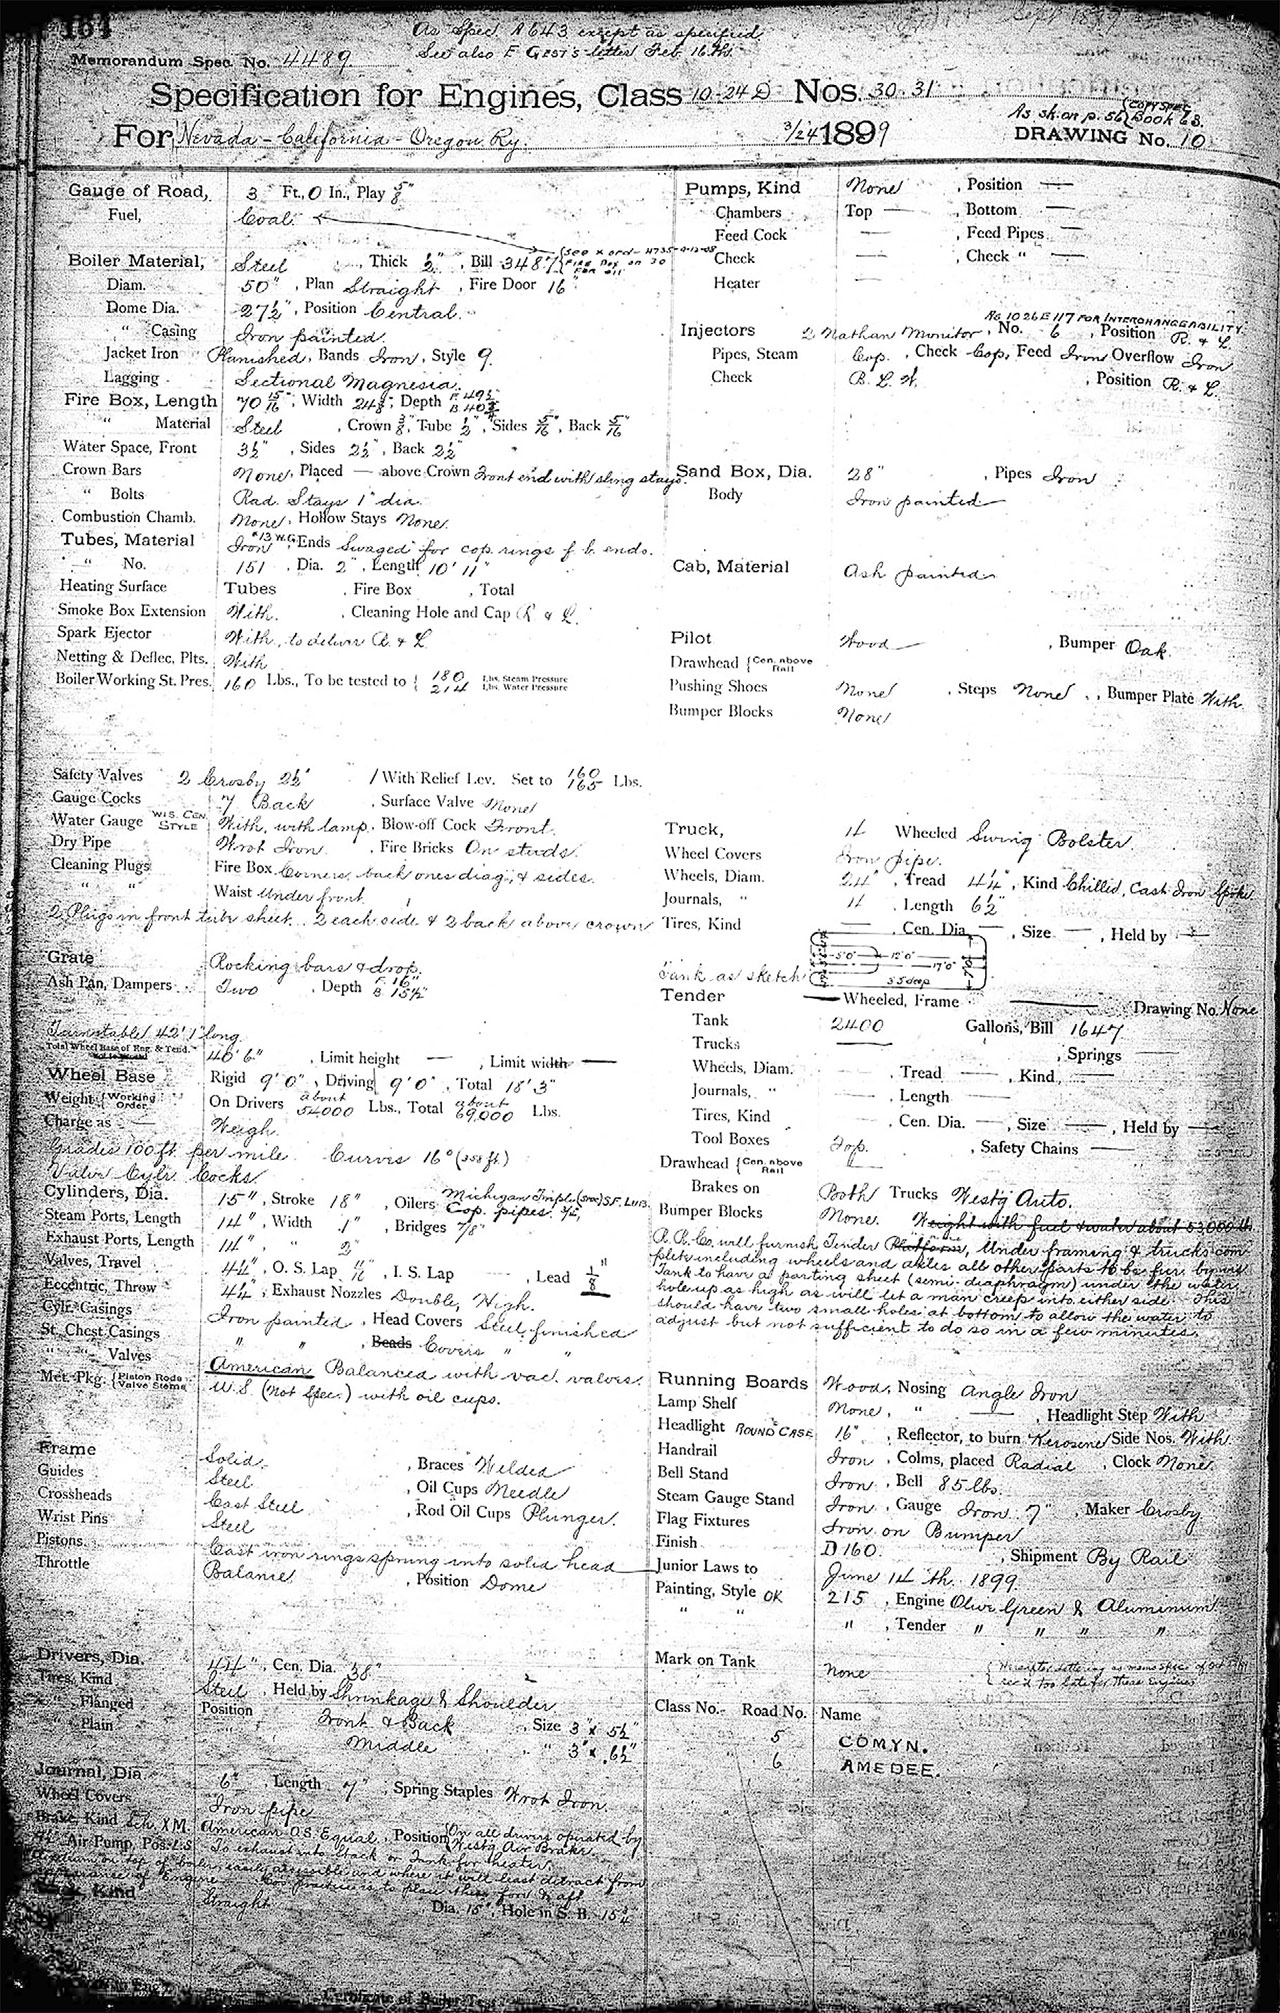 164
As Spec. A643 except as specified
See also E Gest's letter Feb. 16th
Memorandum Spec. No. 4489
Specification for Engines, Class 10-24 D Nos. 30 31
For Nevada-California-Oregon Ry. 3/24 1899
As sk. on p. 56 { Copy Spec Book 68.
DRAWING No. 10
Gauge of Road, 3 Ft., 0 In., Play 5/8"
Fuel, Coal
Boiler Material, Steel, Thick 1/2", Bill 3487
Diam. 50", Plan Straight, Fire Door 16"
Dome Dia. 27 1/2", Position Central.
" Casing Iron painted.
Jacket Iron Planished, Bands Iron, Style 9.
Lagging Sectional Magnesia.
Fire Box, Length 70 15/16", Width 24 3/8", Depth F 49 1/2 B 40 3/4
" Material Steel, Crown 3/8", Tube 1/2", Sides 5/16, Back 5/16"
Water Space, Front 3 1/2", Sides 2 1/2", Back 2 1/2"
Crown Bars None, Placed — above Crown Front end with sling stays.
" Bolts Rad. Stays 1" dia.
Combustion Chamb. None, Hollow Stays None.
Tubes, Material Iron #13 W.G. Ends Swaged for cop. rings f. b. ends.
" No. 151, Dia. 2", Length 10' 11"
Heating Surface Tubes, Fire Box, Total
Smoke Box Extension With, Cleaning Hole and Cap R & L.
Spark Ejector With, to deliver R & L
Netting & Deflec. Plts. With
Boiler Working St. Pres. 160 Lbs., To be tested to { 180 Lbs. Steam Pressure 214 Lbs. Water Pressure
Safety Valves 2 Crosby 2 1/2" 1 With Relief Lev. Set to 160 165 Lbs.
Gauge Cocks 7 Back, Surface Valve None
Water Gauge Wis. Cen. Style With, with lamp, Blow-off Cock Front.
Dry Pipe Wrot Iron, Fire Bricks On studs.
Cleaning Plugs Fire Box Corners, back ones diag, & sides.
" " Waist Under front
2 Plugs in front tube sheet. 2 each side & 2 back above crown
Grate Rocking bars & drop.
Ash Pan, Dampers Two, Depth F 16" B 15 1/2"
Turntable 42' 1" long.
Total Wheel Base of Eng. & Tend. 40' 6", Limit height —, Limit width —
Wheel Base Rigid 9' 0", Driving 9' 0", Total 18' 3"
Weight { Working Order On Drivers about 54000 Lbs., Total about 69,000 Lbs.
Charge as — Weigh.
Grades 100 ft. per mile. Curves 16° (358 ft.)
Valve Cylr. Cocks.
Cylinders, Dia. 15", Stroke 18", Oilers Michigan Triple S.F. Lub. Cop. pipes.
Steam Ports, Length 14", Width 1", Bridges 7/8"
Exhaust Ports, Length 14", " 2"
Valves, Travel O. S. Lap, I. S. Lap, Lead 1/8"
Eccentric, Throw Exhaust Nozzles Double, High.
Cylr. Casings Iron painted, Head Covers Steel, finished
St. Chest Casings " " , Beads Covers " "
" " Valves American Balanced with vac. valves.
Met. Pkg. { Piston Rods Valve Stems U.S. (Not Spec.) with oil cups.
Frame Solid, Braces Welded
Guides Steel, Oil Cups Needle
Crossheads Cast Steel, Rod Oil Cups Plunger.
Wrist Pins Steel
Pistons Cast iron rings sprung into solid head
Throttle Balance, Position Dome
Drivers, Dia. 44", Cen. Dia. 38"
Tires, Kind Steel, Held by Shrinkage & Shoulder
" Flanged Position Front & Back, Size 3" x 5 1/2"
" Plain Middle " 3" x 6 1/2"
Journal, Dia. 6", Length 7", Spring Staples Wrot Iron.
Wheel Covers Iron pipe
Brake, Kind Sch. XM. American O.S. Equal, Position On all drivers operated by Westg Air Brake.
Air Pump, Pos. L.S. To exhaust into Stack or Tank for Heater
boiler easily accessible and where it will least detract from
appearance of Engine.
Kind Straight, Dia. 15", Hole in S. B. 15 3/4"
Pumps, Kind None, Position —
Chambers Top —, Bottom —
Feed Cock —, Feed Pipes —
Check —, Check " —
Heater —
As 1026 E 117 for interchangeability.
Injectors 2 Nathan Monitor, No. 6, Position R. & L.
Pipes, Steam Cop., Check Cop, Feed Iron Overflow Iron
Check B. L. W., Position R. & L.
Sand Box, Dia. 28", Pipes Iron
Body Iron painted
Cab, Material Ash painted
Pilot Wood, Bumper Oak
Drawhead { Cen. above Rail
Pushing Shoes None, Steps None, Bumper Plate With
Bumper Blocks None
Truck, 4 Wheeled Swing Bolster
Wheel Covers Iron pipe.
Wheels, Diam. 24", Tread 4 1/4", Kind Chilled, Cast Iron Spoke
Journals, " 4, Length 6 1/2"
Tires, Kind —, Cen. Dia. —, Size —, Held by —
Tank as sketch
5'0" 12'0" 17'0" 35 deep
Tender — Wheeled, Frame — Drawing No. None
Tank 2400 Gallons, Bill 1647
Trucks —, Springs —
Wheels, Diam. —, Tread —, Kind —
Journals, " —, Length —
Tires, Kind —, Cen. Dia. —, Size —, Held by —
Tool Boxes Top., Safety Chains —
Drawhead { Cen. above Rail
Brakes on Both Trucks Westg Auto.
Bumper Blocks None. Weight with fuel & water about 53,000 lb
R. R. Co. will furnish Tender Platform, Under framing & trucks complete
including wheels and axles all other parts to be fur. by us.
Tank to have a parting sheet (semi-diaphragm) under the water
hole up as high as will let a man creep into either side. This
should have two small holes at bottom to allow the water to
adjust but not sufficient to do so in a few minutes.
Running Boards Wood, Nosing Angle Iron
Lamp Shelf None, " —, Headlight Step With
Headlight Round Case 16", Reflector, to burn Kerosene Side Nos. With
Handrail Iron, Colms, placed Radial, Clock None
Bell Stand Iron, Bell 85 lbs.
Steam Gauge Stand Iron, Gauge Iron 7", Maker Crosby
Flag Fixtures Iron on Bumper
Finish D160., Shipment By Rail
Junior Laws to June 14th. 1899
Painting, Style OK 215, Engine Olive Green & Aluminum
" " " , Tender " " " "
Mark on Tank None
rec'd too late for these engines
Class No. Road No. Name
5 COMYN.
6 AMEDEE.